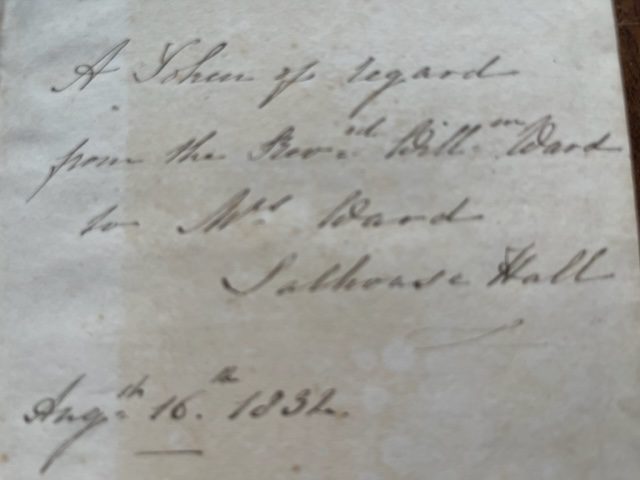 A Token of regard
from the Rev.rd Will.m Ward
to Mrs Ward
Salhouse Hall
Aug.th 16.th 1832.